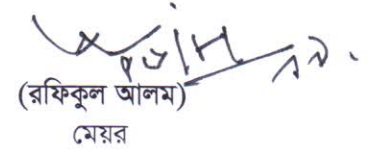 (রফিকুল আলম)
মেয়র